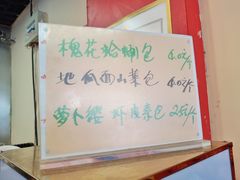 槐花蛤蜊包 6.0元/个
地瓜面山菜包 4.0元/个
萝卜缨 虾皮菜包 2.5元/个